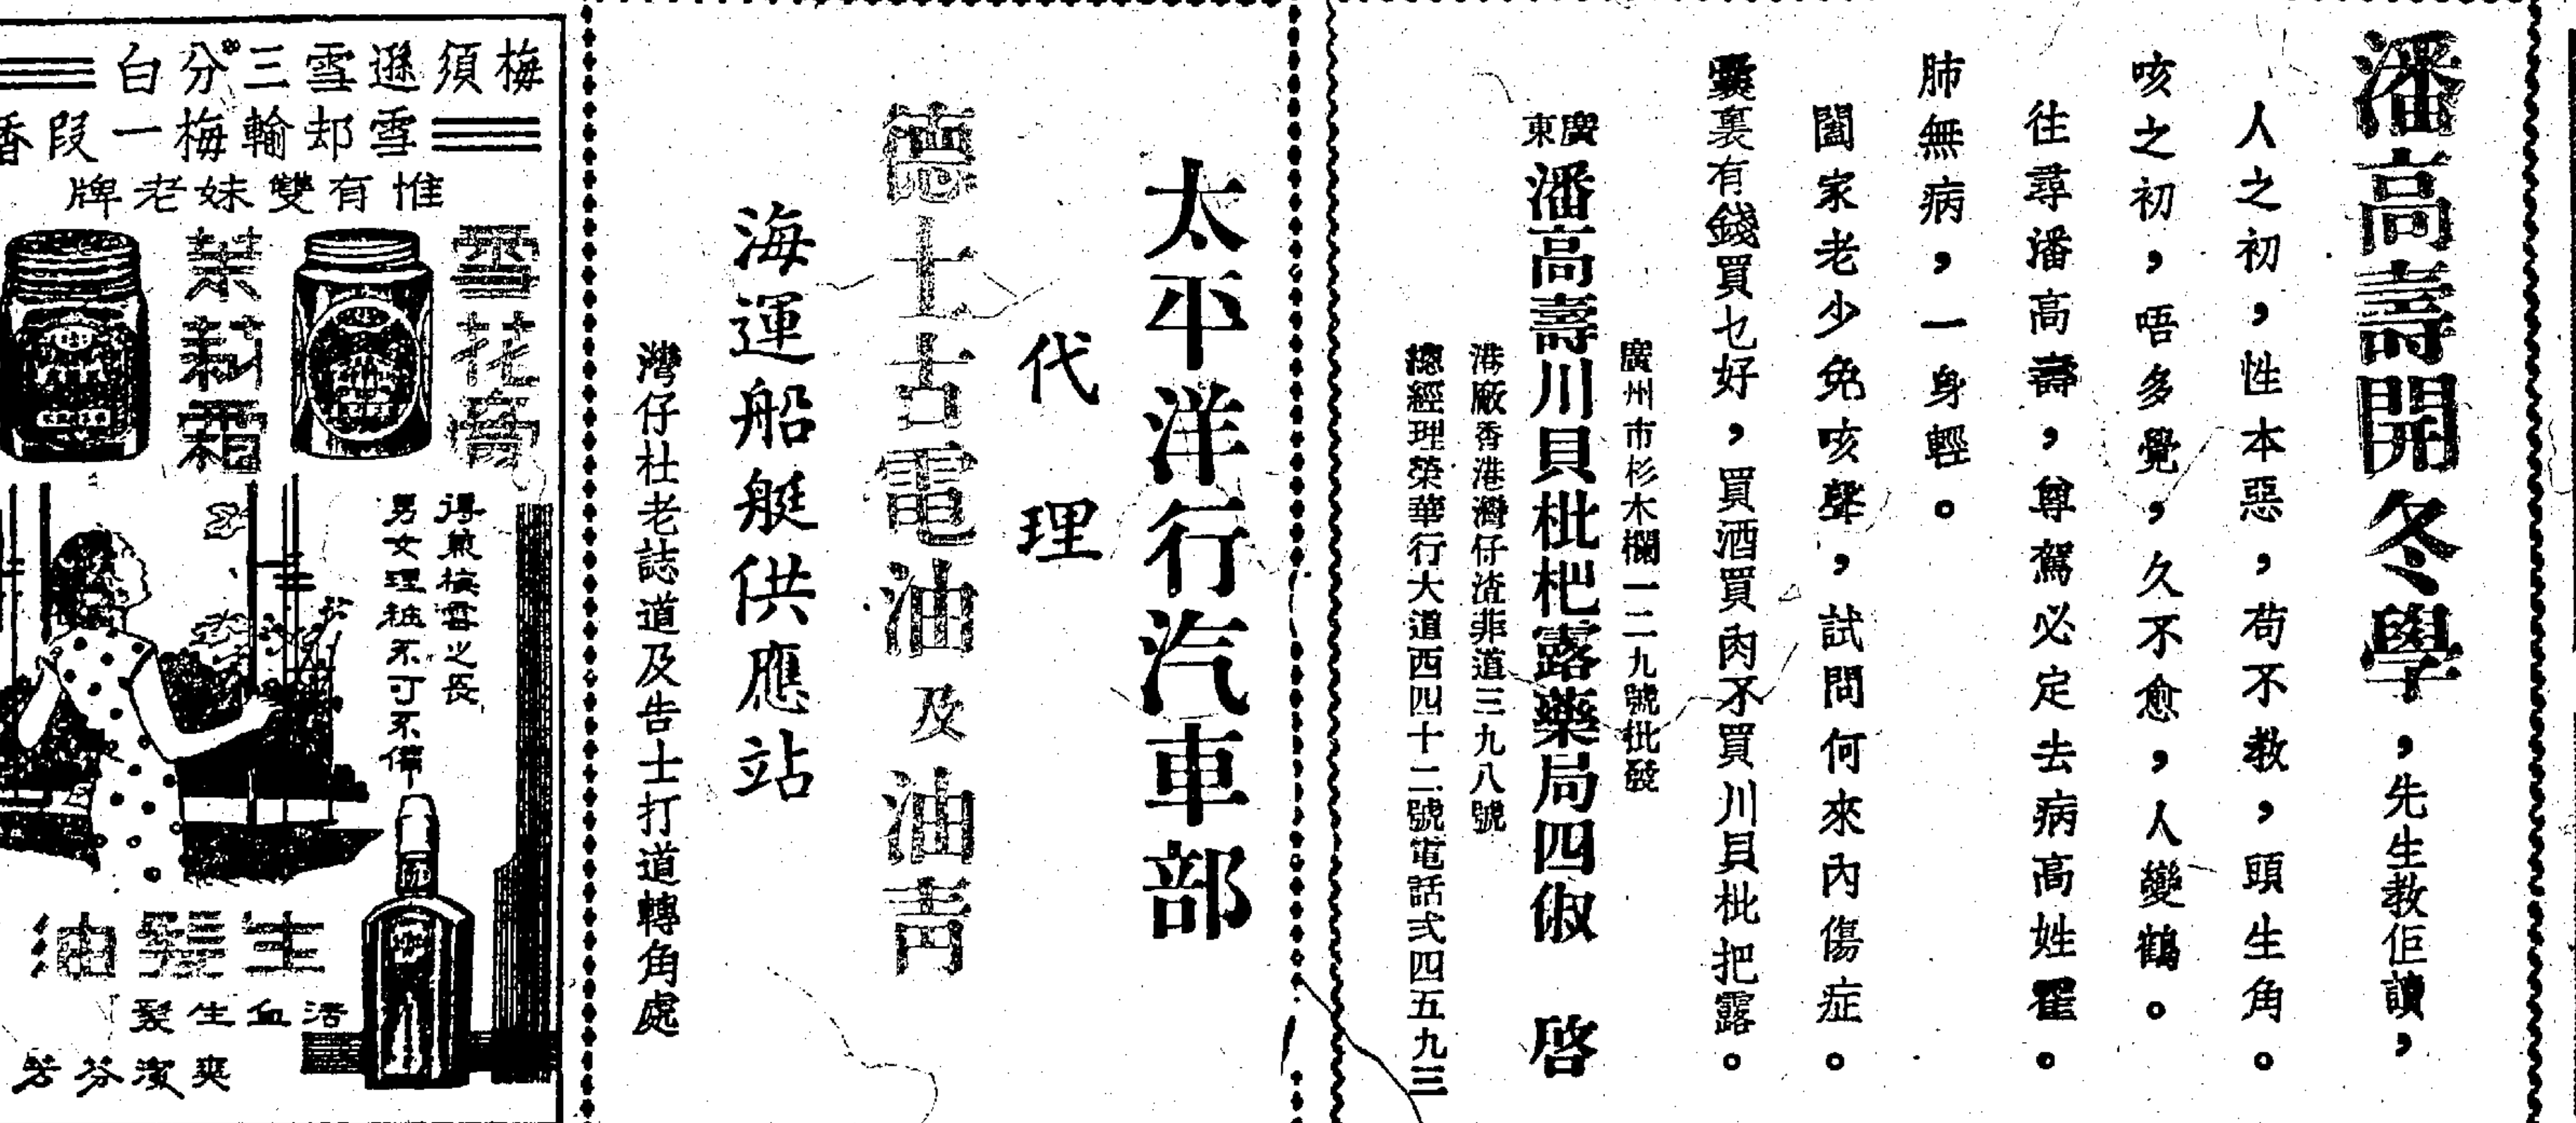 潘高壽開冬學，先生教佢讀，
人之初，性本惡，苟不教，頭生角。
咳之初，唔多覺，久不愈，人變鶴。
往尋潘高壽，尊駕必定去病高姓翟。
肺無病，一身輕。
闔家老少免咳聲，試問何來內傷症。
囊裏有錢買乜好，買酒買肉不買川貝枇把露。
廣州市杉木欄一二九號批發
廣東潘高壽川貝枇杷露藥局四俶 啓
港廠香港灣仔渣菲道三九八號
總經理榮華行大道西四十二號電話弍四五九三
太平洋行汽車部
代理
德士古電油及油青
海運船艇供應站
灣仔杜老誌道及告士打道轉角處
梅須遜雪三分白
雪却輸梅一段香
惟有雙妹老牌
雪花膏
茉莉霜
得兼梅雪之長
男女理粧不可不備
生髮油
活血生髮
爽潔芬芳